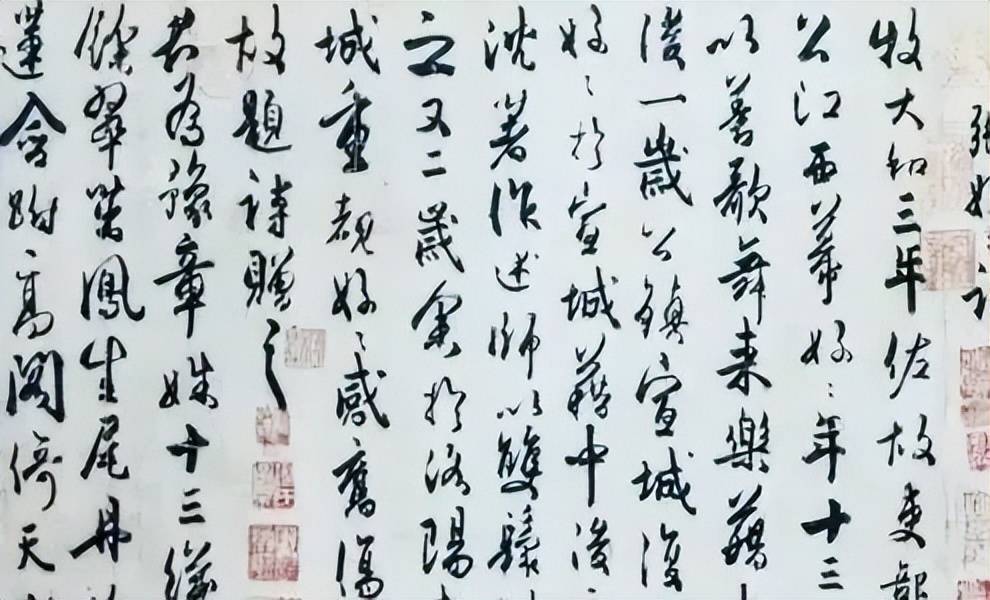 張好〻詩
牧大和三年佐故吏部
公江西幕好〻年十三
以善歌舞来樂籍
後一歲公鎮宣城復
好〻於宣城籍中後
沈著作述師以雙鬟
之又二歲余於洛陽
城重覩好〻感舊傷
故題詩贈之
君為豫章姝十三纔
餘翠茁鳳生尾丹
蓮含跗高閣倚天